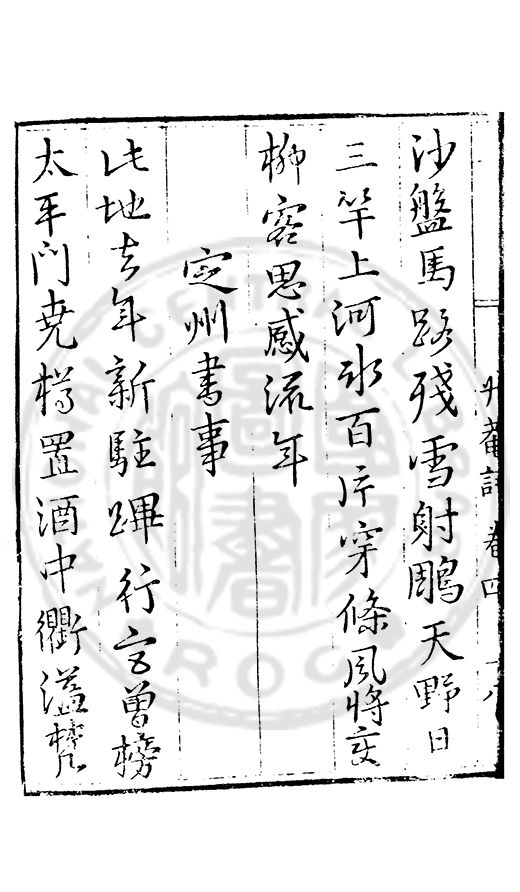 沙盤馬路殘雪射鵰天野日
三竿上河冰百片穿條風將變
柳客思感流年
定州書事
此地去年新駐蹕行宮曾榜
太平門堯樽置酒中衢溢梵
菴詩 卷四